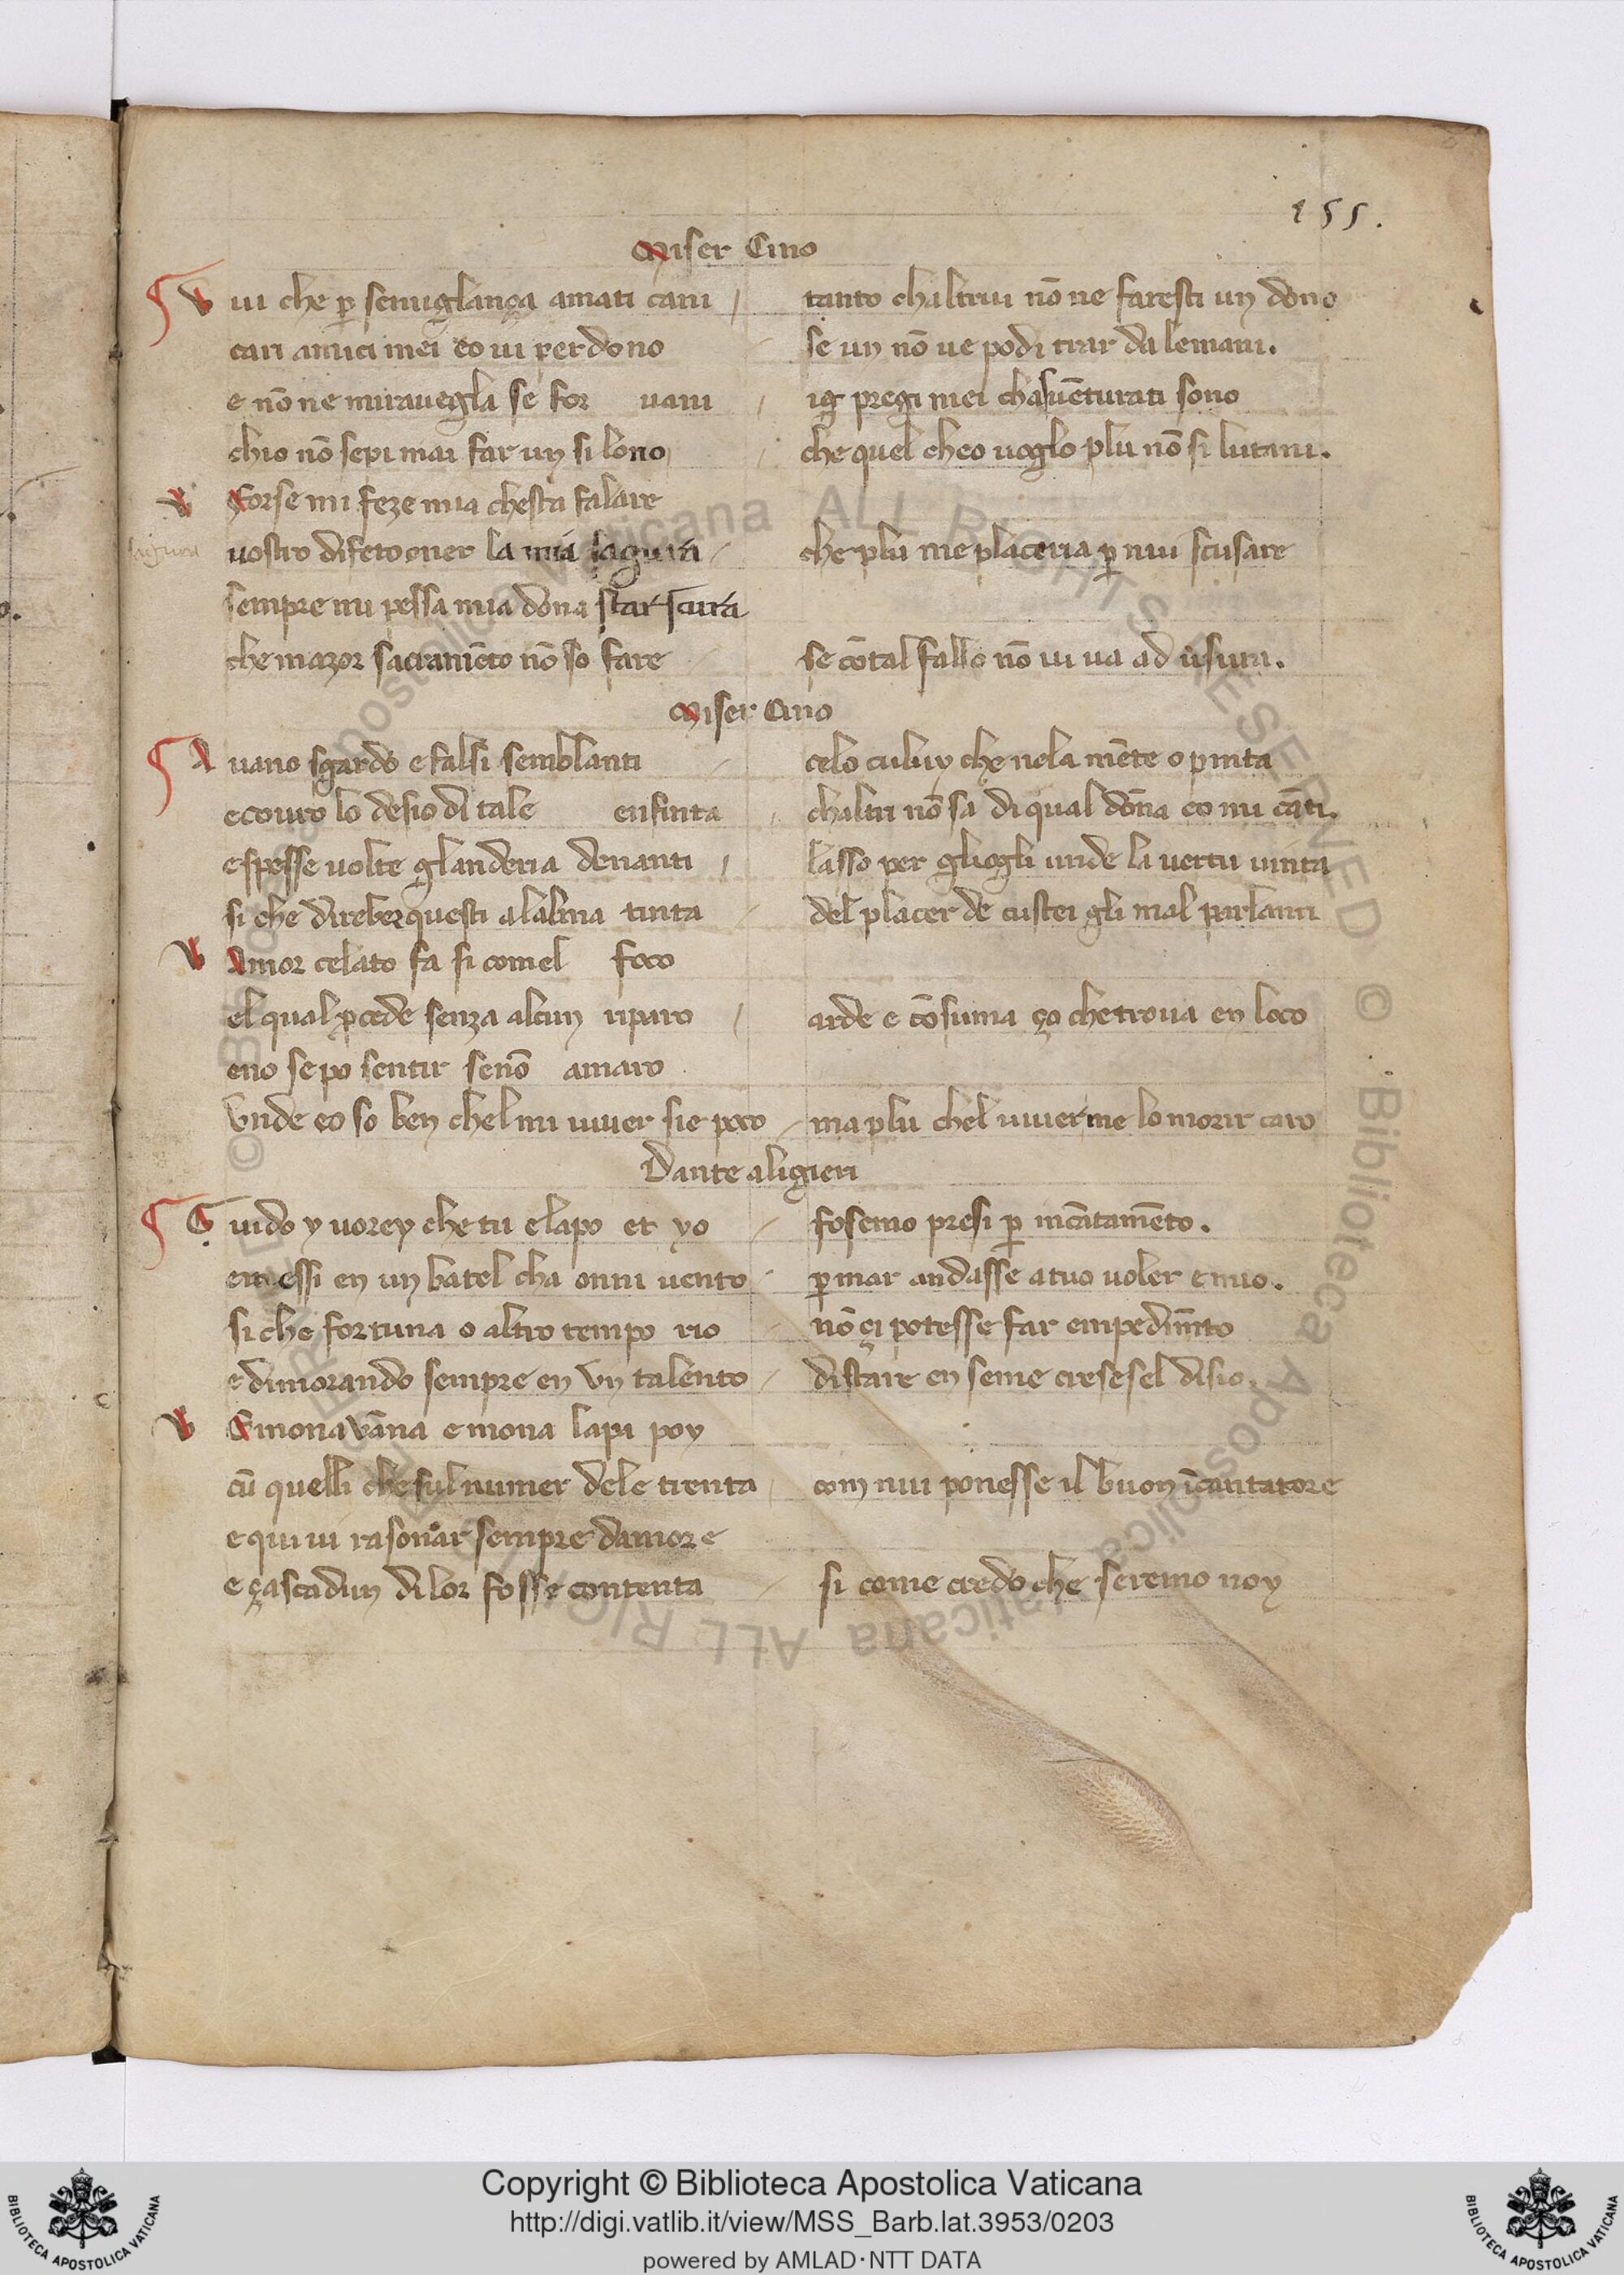 155.
Miser Cino
Vui che p̱ semiglança amati cani / tanto chaltrui nō ne faresti un dono
cari amici mei eo ui perdono / se un nō ue podi trar da le mani.
e nō ne mirauegla se for uani / preg mei chasuēturati sono
chio nō sepi mai far uŋ si lono / che quel cheo uoglo plu nō si lutani.
Forse mi feze mia chesta falare
uostro difeto ouer la mia sagura / che plu me placeria p̱ nui scusare
sagura
sempre mi pessa mia dona star scura
che mazor sacramēto nō so fare / se cōtal fallo nō ui ua ad usura.
Miser Cino
A uano sgardo e falsi semblanti / celo culuy che nela mēte o pinta
e couro lo desio di tale enfinta / chaltri nō sa di qual dōna eo mi cāti.
e spesse uolte gla denanti / lasso per gliogli unde la uertu uinta
si che direber questi a lalma tinta / del placer de custei gli mal parlanti
Amor celato fa si comel foco
el qual p̱cede senza alcun riparo / arde e cōsuma ço che troua en loco
eno se po sentir senō amaro
Vnde eo so ben chel mi uiuer sie poco / ma plu chel uiuer me lo morir caro
Dante aligieri
Guido y uorey che tu e lapo et yo / fosemo presi p̱ incātamēto.
e messi en un batel cha onni uento / p̱ mar andasse a tuo uoler e mio.
si che fortuna o altro tempo rio / nō çi potesse far empedimēto
e dimorando sempre en vn talento / distare enseme cresesel disio.
E mona vāna e mona lapi poy
cū quelli che sul numer dele trenta / com nui ponesse il buon īcantatore
e qui ui rasonar sempre damore
e çascadun di lor fosse contenta / si come credo che seremo noy
Copyright © Biblioteca Apostolica Vaticana
http://digi.vatlib.it/view/MSS_Barb.lat.3953/0203
powered by AMLAD·NTT DATA